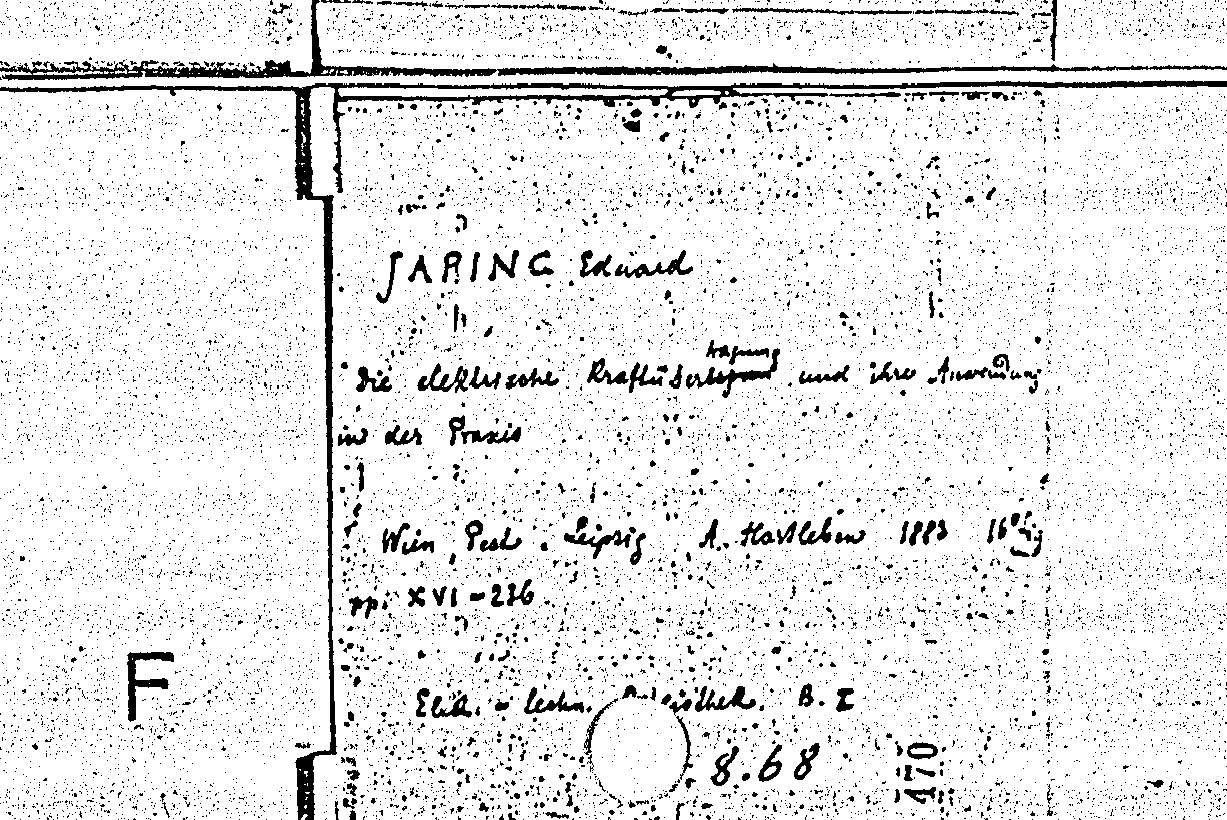 JAPING Eduard
Die elektrische Kraftübertragung und ihre Anwendung
in der Praxis
Wien, Pest, Leipzig A. Hartleben 1883 16° fig
pp. XVI-236
Elek. - techn. Bibliothek. B. II
F
8.68
170